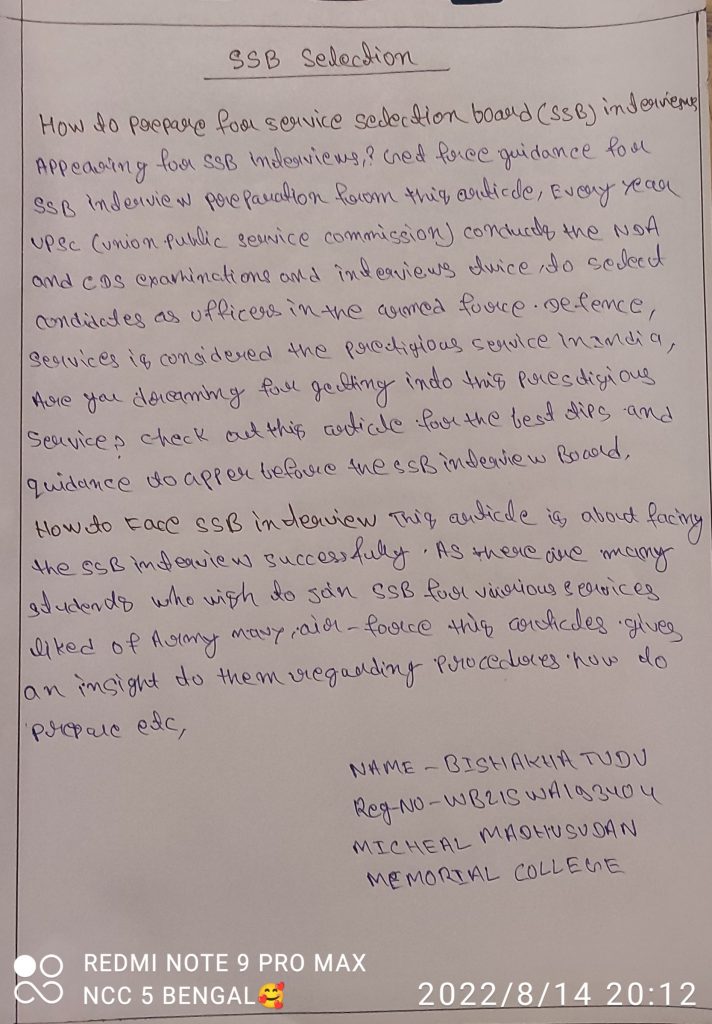 SSB Selection
How to prepare for service selection board (SSB) interviews
Appearing for SSB interviews,? Get free guidance for
SSB interview preparation from this article, Every year
UPSC (union public service commission) conducts the NDA
and CDS examinations and interviews twice, to select
candidates as officers in the armed force. Defence,
services is considered the prestigious service in India,
Are you dreaming for getting into this prestigious
service? check out this article for the best tips and
guidance to apper before the SSB interview Board,
How to Face SSB interview This article is about facing
the SSB interview successfully. As there are many
students who wish to join SSB for various services
liked of Army navy, air-force this articles gives
an insight to them regarding procedures how to
prepare etc,
NAME - BISHAKHA TUDU
Reg-NO - WB21SWA193404
MICHEAL MADHUSUDAN
MEMORIAL COLLEGE
REDMI NOTE 9 PRO MAX
NCC 5 BENGAL🥰
2022/8/14 20:12